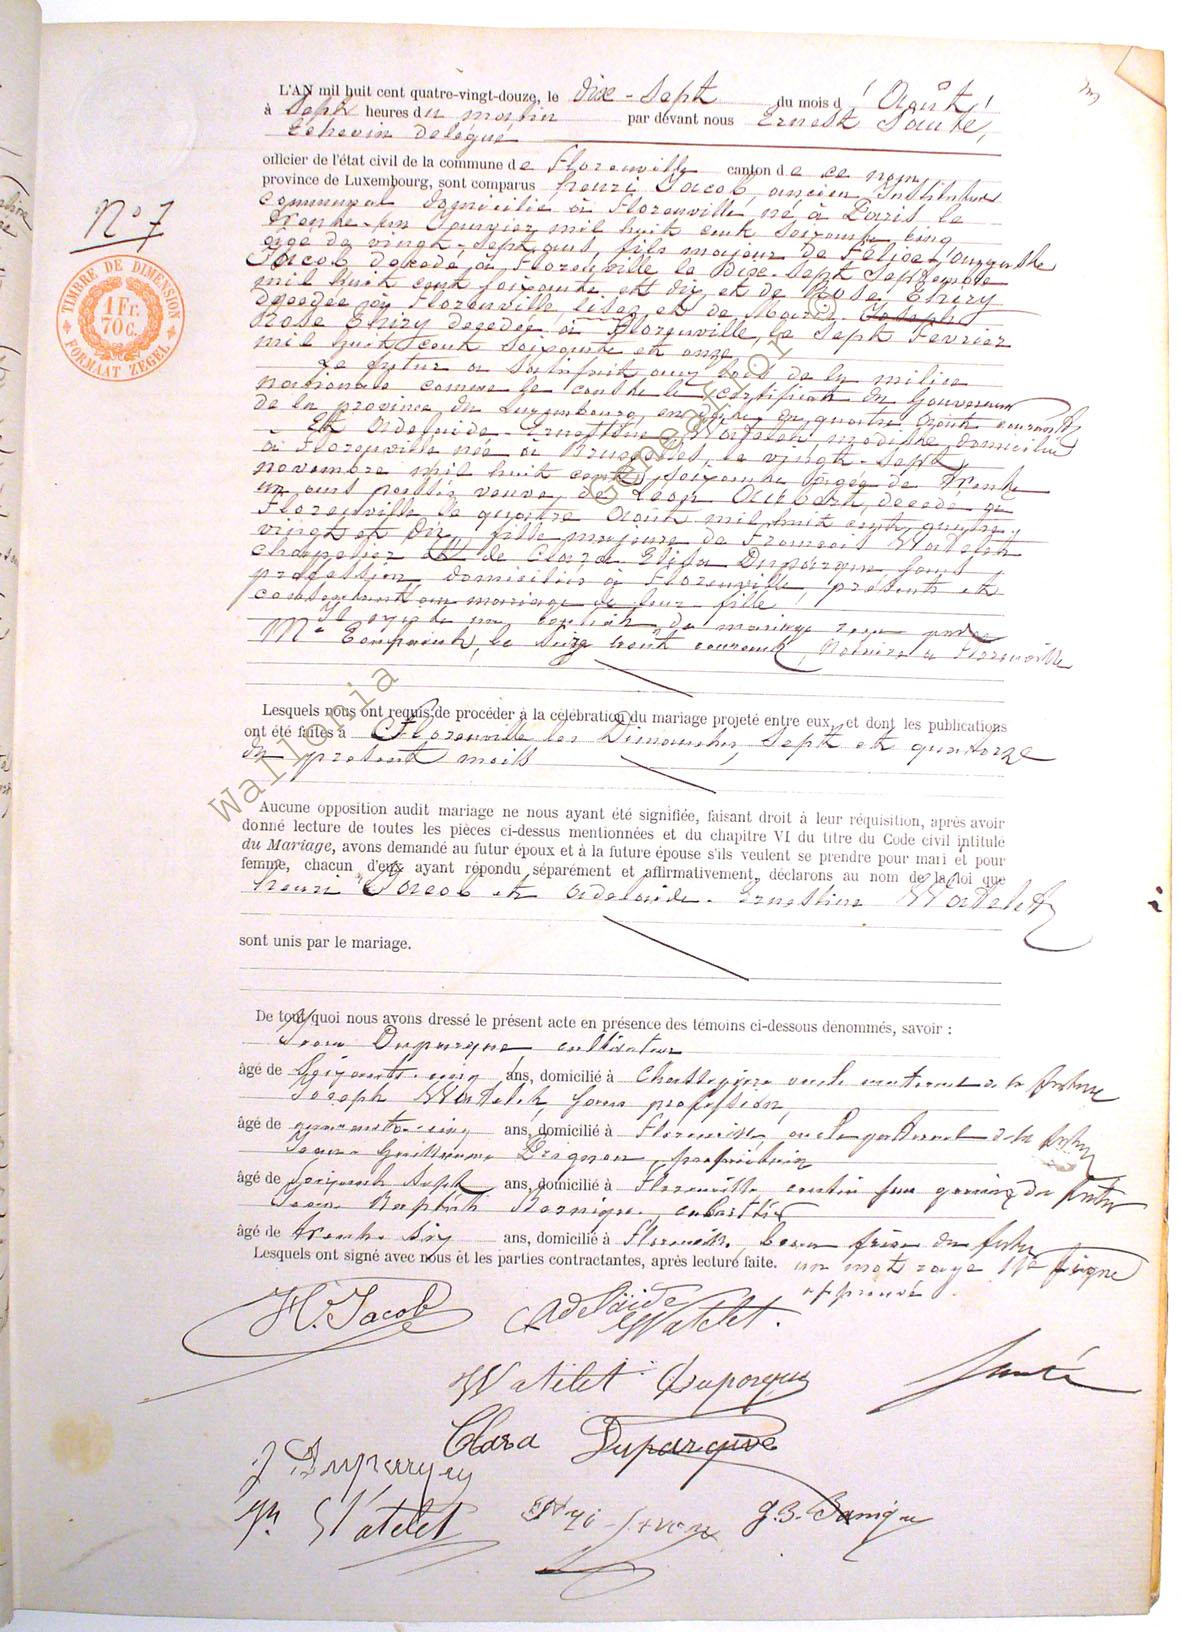 L'AN mil huit cent quatre-vingt-douze, le dix-sept du mois d'Août
à sept heures du matin par devant nous Ernest Santé,
Echevin délégué
officier de l'état civil de la commune de Florenville canton de ce nom,
province de Luxembourg, sont comparus Henri Jacob, ancien Instituteur
communal domicilié à Florenville né à Paris le
trente-un Janvier mil huit cent soixante cinq
âgé de vingt-sept ans, fils majeur de Félicet Augusthe
Jacob décédé à Florenville le Dix-sept Septembre
mil huit cent soixante et dix et de Rose Thiry
décédée à Florenville, lisez et de Marie Joseph
Rose Thiry décédée à Florenville, le sept Février
mil huit cent soixante et onze
Le futur a satisfait aux lois de la milice
nationale comme le constte le certificat du Gouverneur
de la province du Luxembourg, en date du quatre Août courant
Et Adelaide-Ernestine Watelet, modiste, domiciliée
à Florenville née à Bruxelles, le vingt-sept
novembre mil huit cent soixante âgée de trente
un ans passés veuve de Léon Aubert, décédé à
Florenville le quatre Août mil huit cent quatre
vingt et dix, fille majeure de François Watelet
chapelier et de Clara Elisa Duparque sans
profession, domiciliés à Florenville, présents et
consentant au mariage de leur fille
Il existe un contrat de mariage reçu par
Me le seize Août courant, Notaire à Florenville
N° 7
TIMBRE DE DIMENSION
1 Fr.
70 c.
FORMAAT ZEGEL
Lesquels nous ont requis de procéder à la célébration du mariage projeté entre eux, et dont les publications
ont été faites à Florenville les Dimanches, sept et quatorze
du présent mois
Aucune opposition audit mariage ne nous ayant été signifiée, faisant droit à leur réquisition, après avoir
donné lecture de toutes les pièces ci-dessus mentionnées et du chapitre VI du titre du Code civil intitulé
du Mariage, avons demandé au futur époux et à la future épouse s'ils veulent se prendre pour mari et pour
femme, chacun d'eux ayant répondu séparément et affirmativement, déclarons au nom de la loi que
Henri Jacob et Adelaide-Ernestine Watelet
sont unis par le mariage.
De tout quoi nous avons dressé le présent acte en présence des témoins ci-dessous dénommés, savoir :
Jean Duparque, cultivateur
âgé de soixante-cinq ans, domicilié à oncle maternel de la future
Joseph Watelet, sans profession,
âgé de quarante-cinq ans, domicilié à Florenville, oncle paternel de la future
Guillaume propriétaire
âgé de soixante sept ans, domicilié à Florenville cousin germain du futur
Jean Baptiste
âgé de trente six ans, domicilié à Florenville, beau frère du futur
Lesquels ont signé avec nous et les parties contractantes, après lecture faite. un mot rayé 11e ligne
approuvé
H. Jacob Adelaïde
Watelet.
Watelet-Duparque Santé
Clara Duparque
J Duparque
Watelet
Wallonia Génération